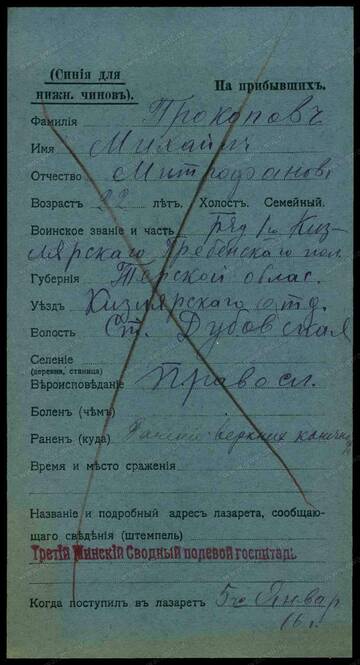 (Синія для
нижн. чиновъ).
На прибывшихъ.
Фамилія Прокоповъ
Имя Михаилъ
Отчество Митрофановъ
Возрастъ 22 лѣтъ. Холост. Семейный.
Воинское званіе и часть ряд 1го Киз-
лярскаго Гребенскаго пол.
Губернія Терской облас.
Уѣздъ Кизлярскаго отд.
Волость Ст. Дубовская
Селеніе
(деревня, станица)
Вѣроисповѣданіе Правосл.
Боленъ (чѣмъ)
Раненъ (куда) верхних конечн
Время и мѣсто сраженія
Названіе и подробный адресъ лазарета, сообщаю-
щаго свѣдѣнія (штемпель)
Третій Минскій Сводный полевой госпиталь.
Когда поступилъ въ лазаретъ 5го Январ
16 г.